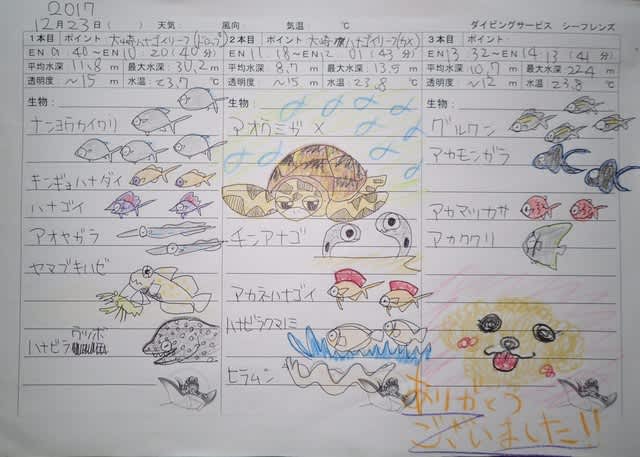 2017
12月23日( ) 天気: 風向: 気温: ℃ ダイビングサービス シーフレンズ
1本目 ポイント 大崎ハナゴイリーフ(ドロップ)
EN 9:40〜EN10:20(40分)
平均水深 11.8 m 最大水深 30.2 m
透明度 〜15 m 水温: 23.7 ℃
生物:
ナンヨウカイワリ
キンギョハナダイ
ハナゴイ
アオヤガラ
ヤマブキハゼ
ハナビラウツボ
2本目 ポイント 大崎ハナゴイリーフ
EN 11:18〜 2:01(43分)
平均水深 8.7 m 最大水深 13.5 m
透明度 〜15 m 水温: 23.8 ℃
生物:
アオウミガメ
チンアナゴ
アカネハナゴイ
ハナビラクマノミ
ヒラムシ
3本目 ポイント
EN 13:32〜EN 14:13(41分)
平均水深 10.7 m 最大水深 22.4 m
透明度 〜12 m 水温: 23.8 ℃
生物:
グルクン
アカモンガラ
アカマツカサ
アカククリ
ありがとう
ございました!!